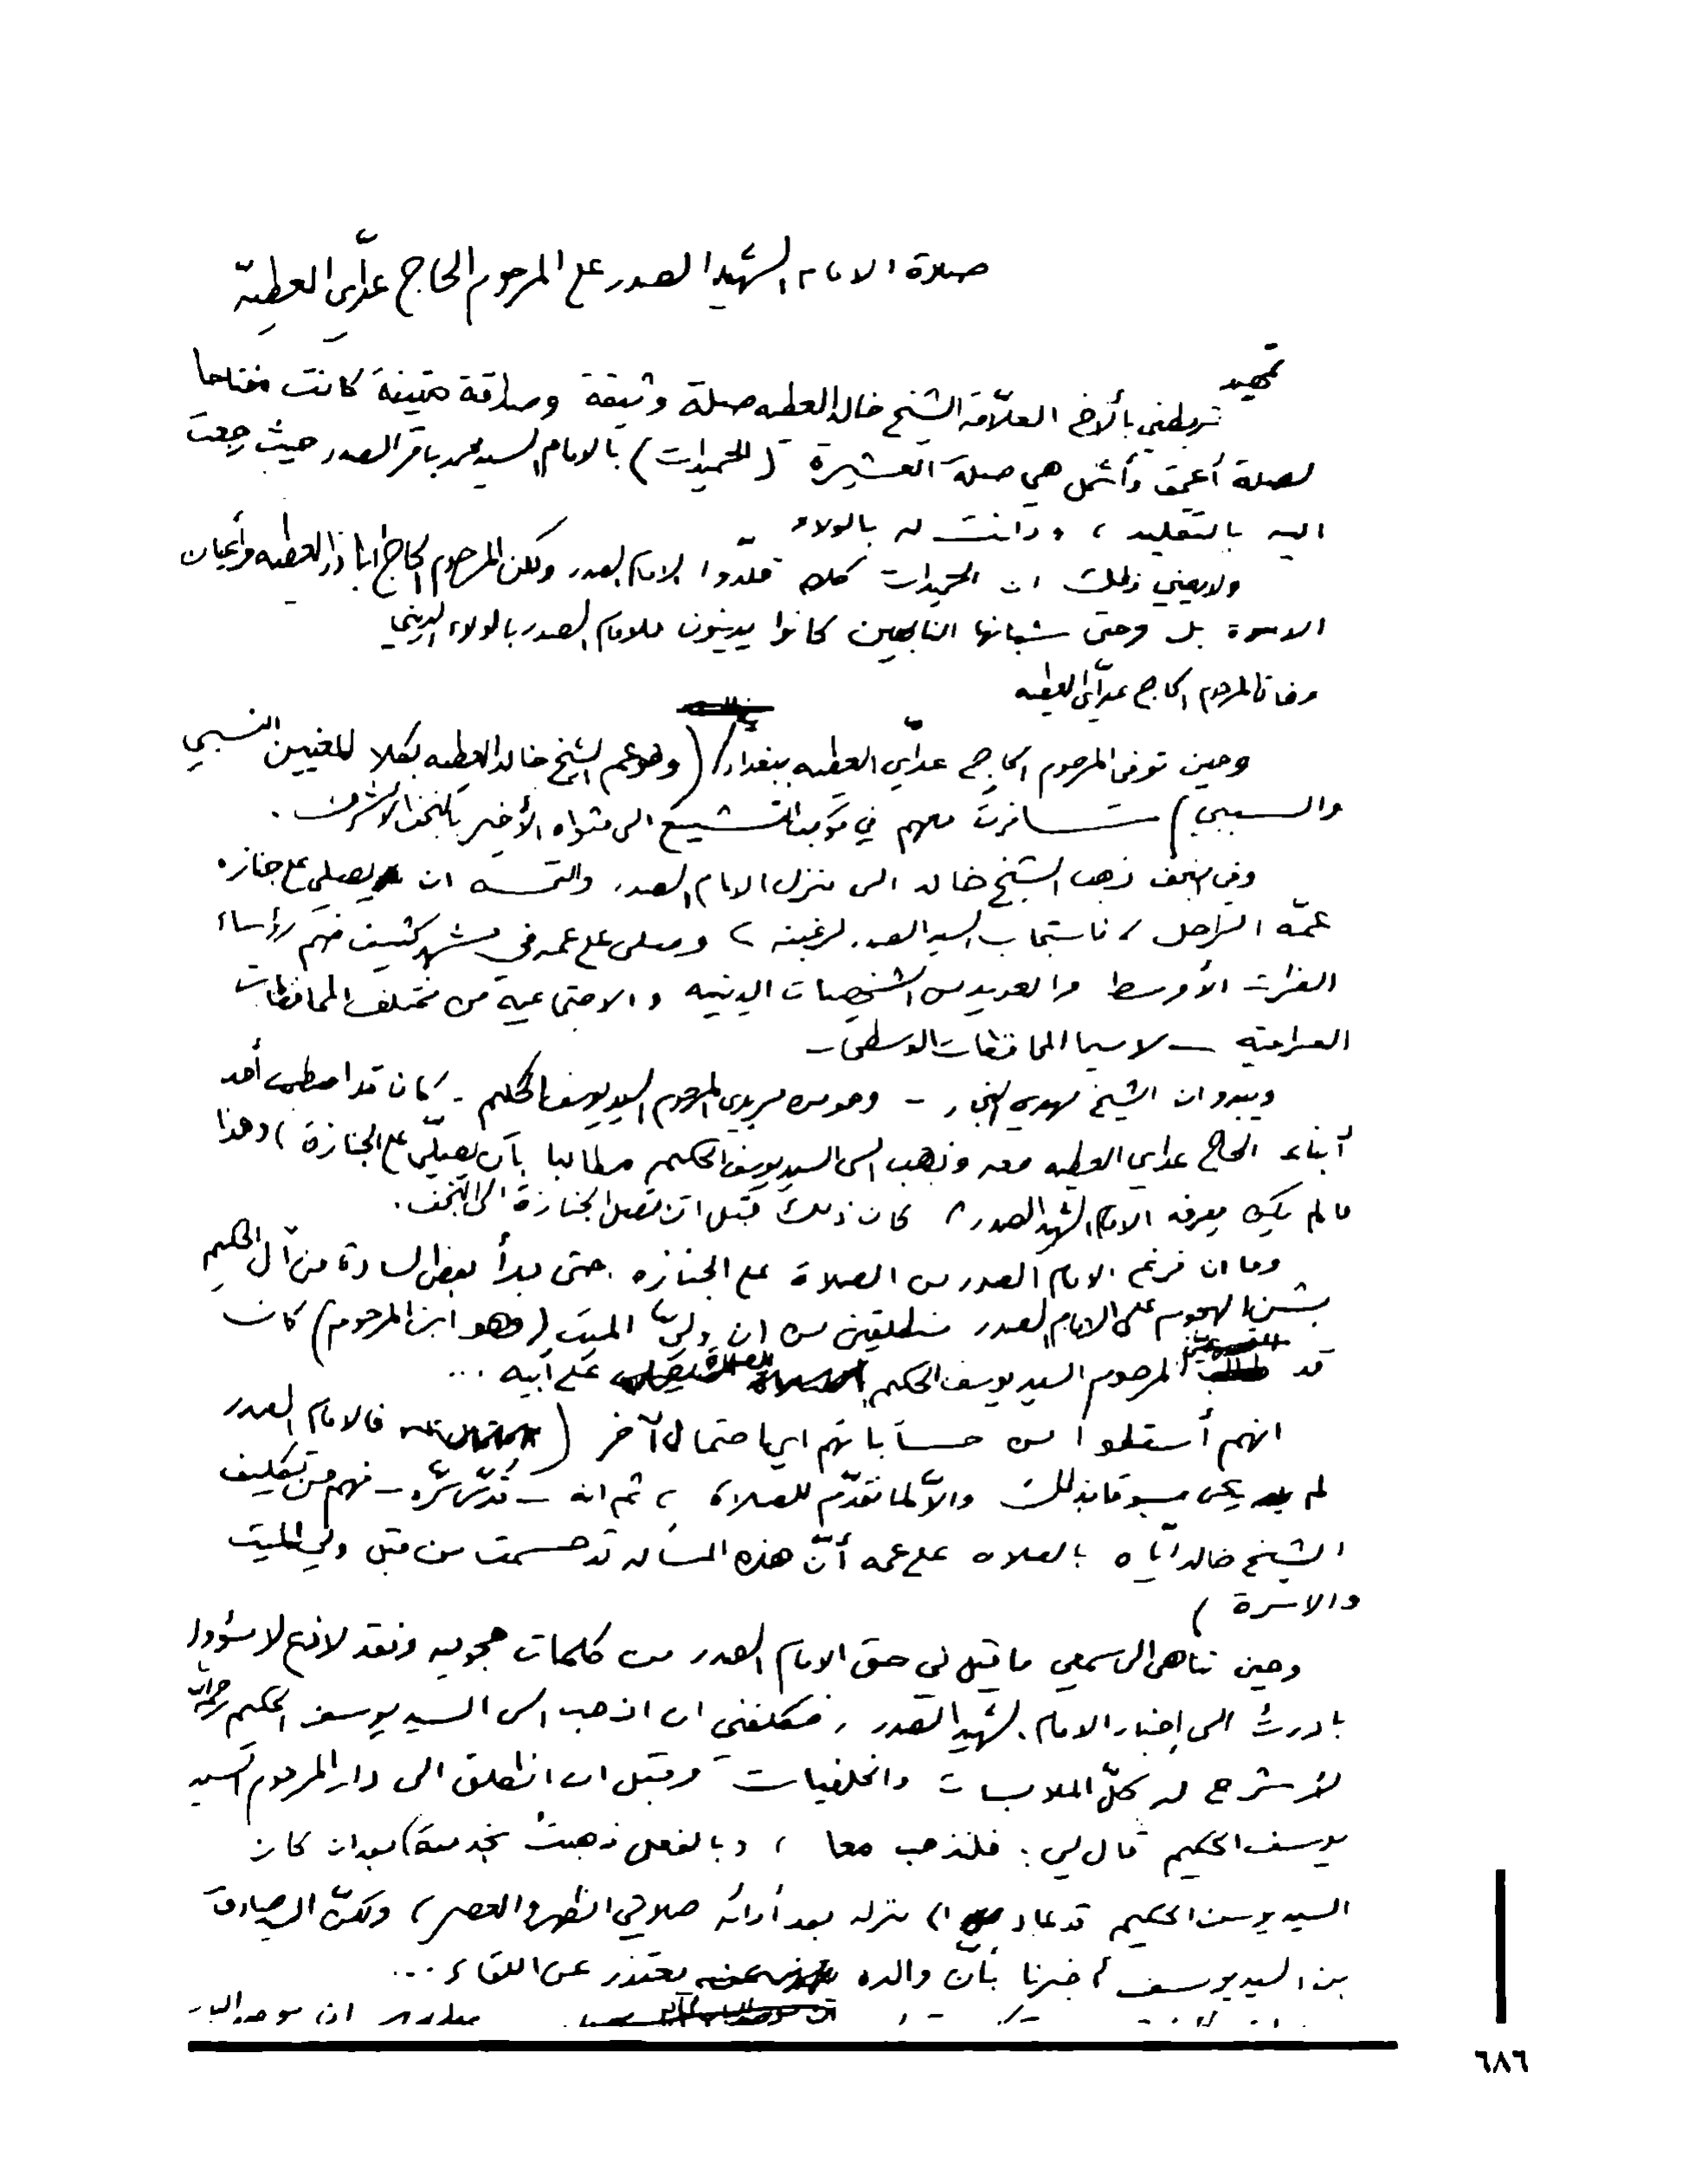 صلاة الامام الشهيد الصدر على المرحوم الحاج عدّاي العطيّة
تمهيد
تربطني بألاخ العلّامة الشيخ خالد العطيه صلة وثيقة وصداقة متينة كانت مفتاحا
لصلة أعمق وأشمل هي صلة العشيرة (الحميدات) بالامام السيد محمد باقر الصدر حيث رجعت
اليه بالتقليد ، ودانت له بالولاء
ولا يعني ذلك ان الحميدات كلهم قلّدوا الامام الصدر ولكن المرحوم الحاج اباذر العطيه وأعيان
الاسرة بل وحتى شبانها النابهين كانوا يدينون للامام الصدر بالولاء الديني
وفاة المرحوم الحاج عدّاي العطيه
وحين توفى المرحوم الحاج عدّاي العطيه ببغداد (وهو عم الشيخ خالد العطيه بكلا المعنيين النسبي
والسببي) سافرت معهم في موكب التشييع الى مثواه الأخير بالنجف الأشرف .
وفي النجف ذهب الشيخ خالد الى منزل الامام الصدر والتمسه ان يصلي على جنازة
عمّه الراحل ، فاستجاب السيد الصدر لرغبته ، وصلى على عمه في مشهد كثيف ضم رؤساء
الفرات الأوسط والعديد من الشخصيات الدينيه والاجتماعية من مختلف المحافظات
العراقيه – لاسيما المحافظات الوسطى –
ويبدو ان الشيخ مهدي النجار – وهو من مريدي المرحوم السيد يوسف الحكيم – كان قد اصطحب أحد
أبناء الحاج عداي العطيه معه وذهب الى السيد يوسف الحكيم مطالبا بأن يصلّي على الجنازة ، وهذا
مالم يكن يعرفه الامام الشهيد الصدر ، كان ذلك قبل ان تصل الجنازة الى النجف .
وما ان فرغ الامام الصدر من الصلاة على الجنازه ، حتى بدأ بعض السادة من آل الحكيم
بشن الهجوم على الامام الصدر منطلقين من ان وليّ الميت (وهو ابن المرحوم) كان
قد المرحوم السيد يوسف الحكيم للصلاة على أبيه ...
انهم أسقطوا من حساباتهم اي احتمال آخر ( فالامام الصدر
لم يكن مسبوقا بذلك والّا لما تقدّم للصلاة ، ثم انه – قدّس سرّه – فهم من تكليف
الشيخ خالد ايّاه بالصلاه على عمه أنّ هذه المسأله قد حسمت من قبل ولي الميت
والاسرة )
وحين تناهى الى سمعي ما قيل في حق الامام الصدر من كلمات هجوميه ونقد لاذع لا مسؤول
بادرتُ الى إخبار الامام الشهيد الصدر ، فكلفني ان اذهب الى السيد يوسف الحكيم رحمه الله
لأشرح له كلّ الملابسات والخلفيات وقبل ان انطلق الى دار المرحوم السيد
يوسف الحكيم قال لي : فلنذهب معا ، وبالفعل ذهبتُ بخدمته ، بعد ان كان
السيد يوسف الحكيم قد عاد الى منزله بعد أدائه صلاتي الظهر والعصر ، ولكنّ السيد صادق
بن السيد يوسف أخبرنا بأن والده يعتذر عن اللقاء ...
٦٨٦